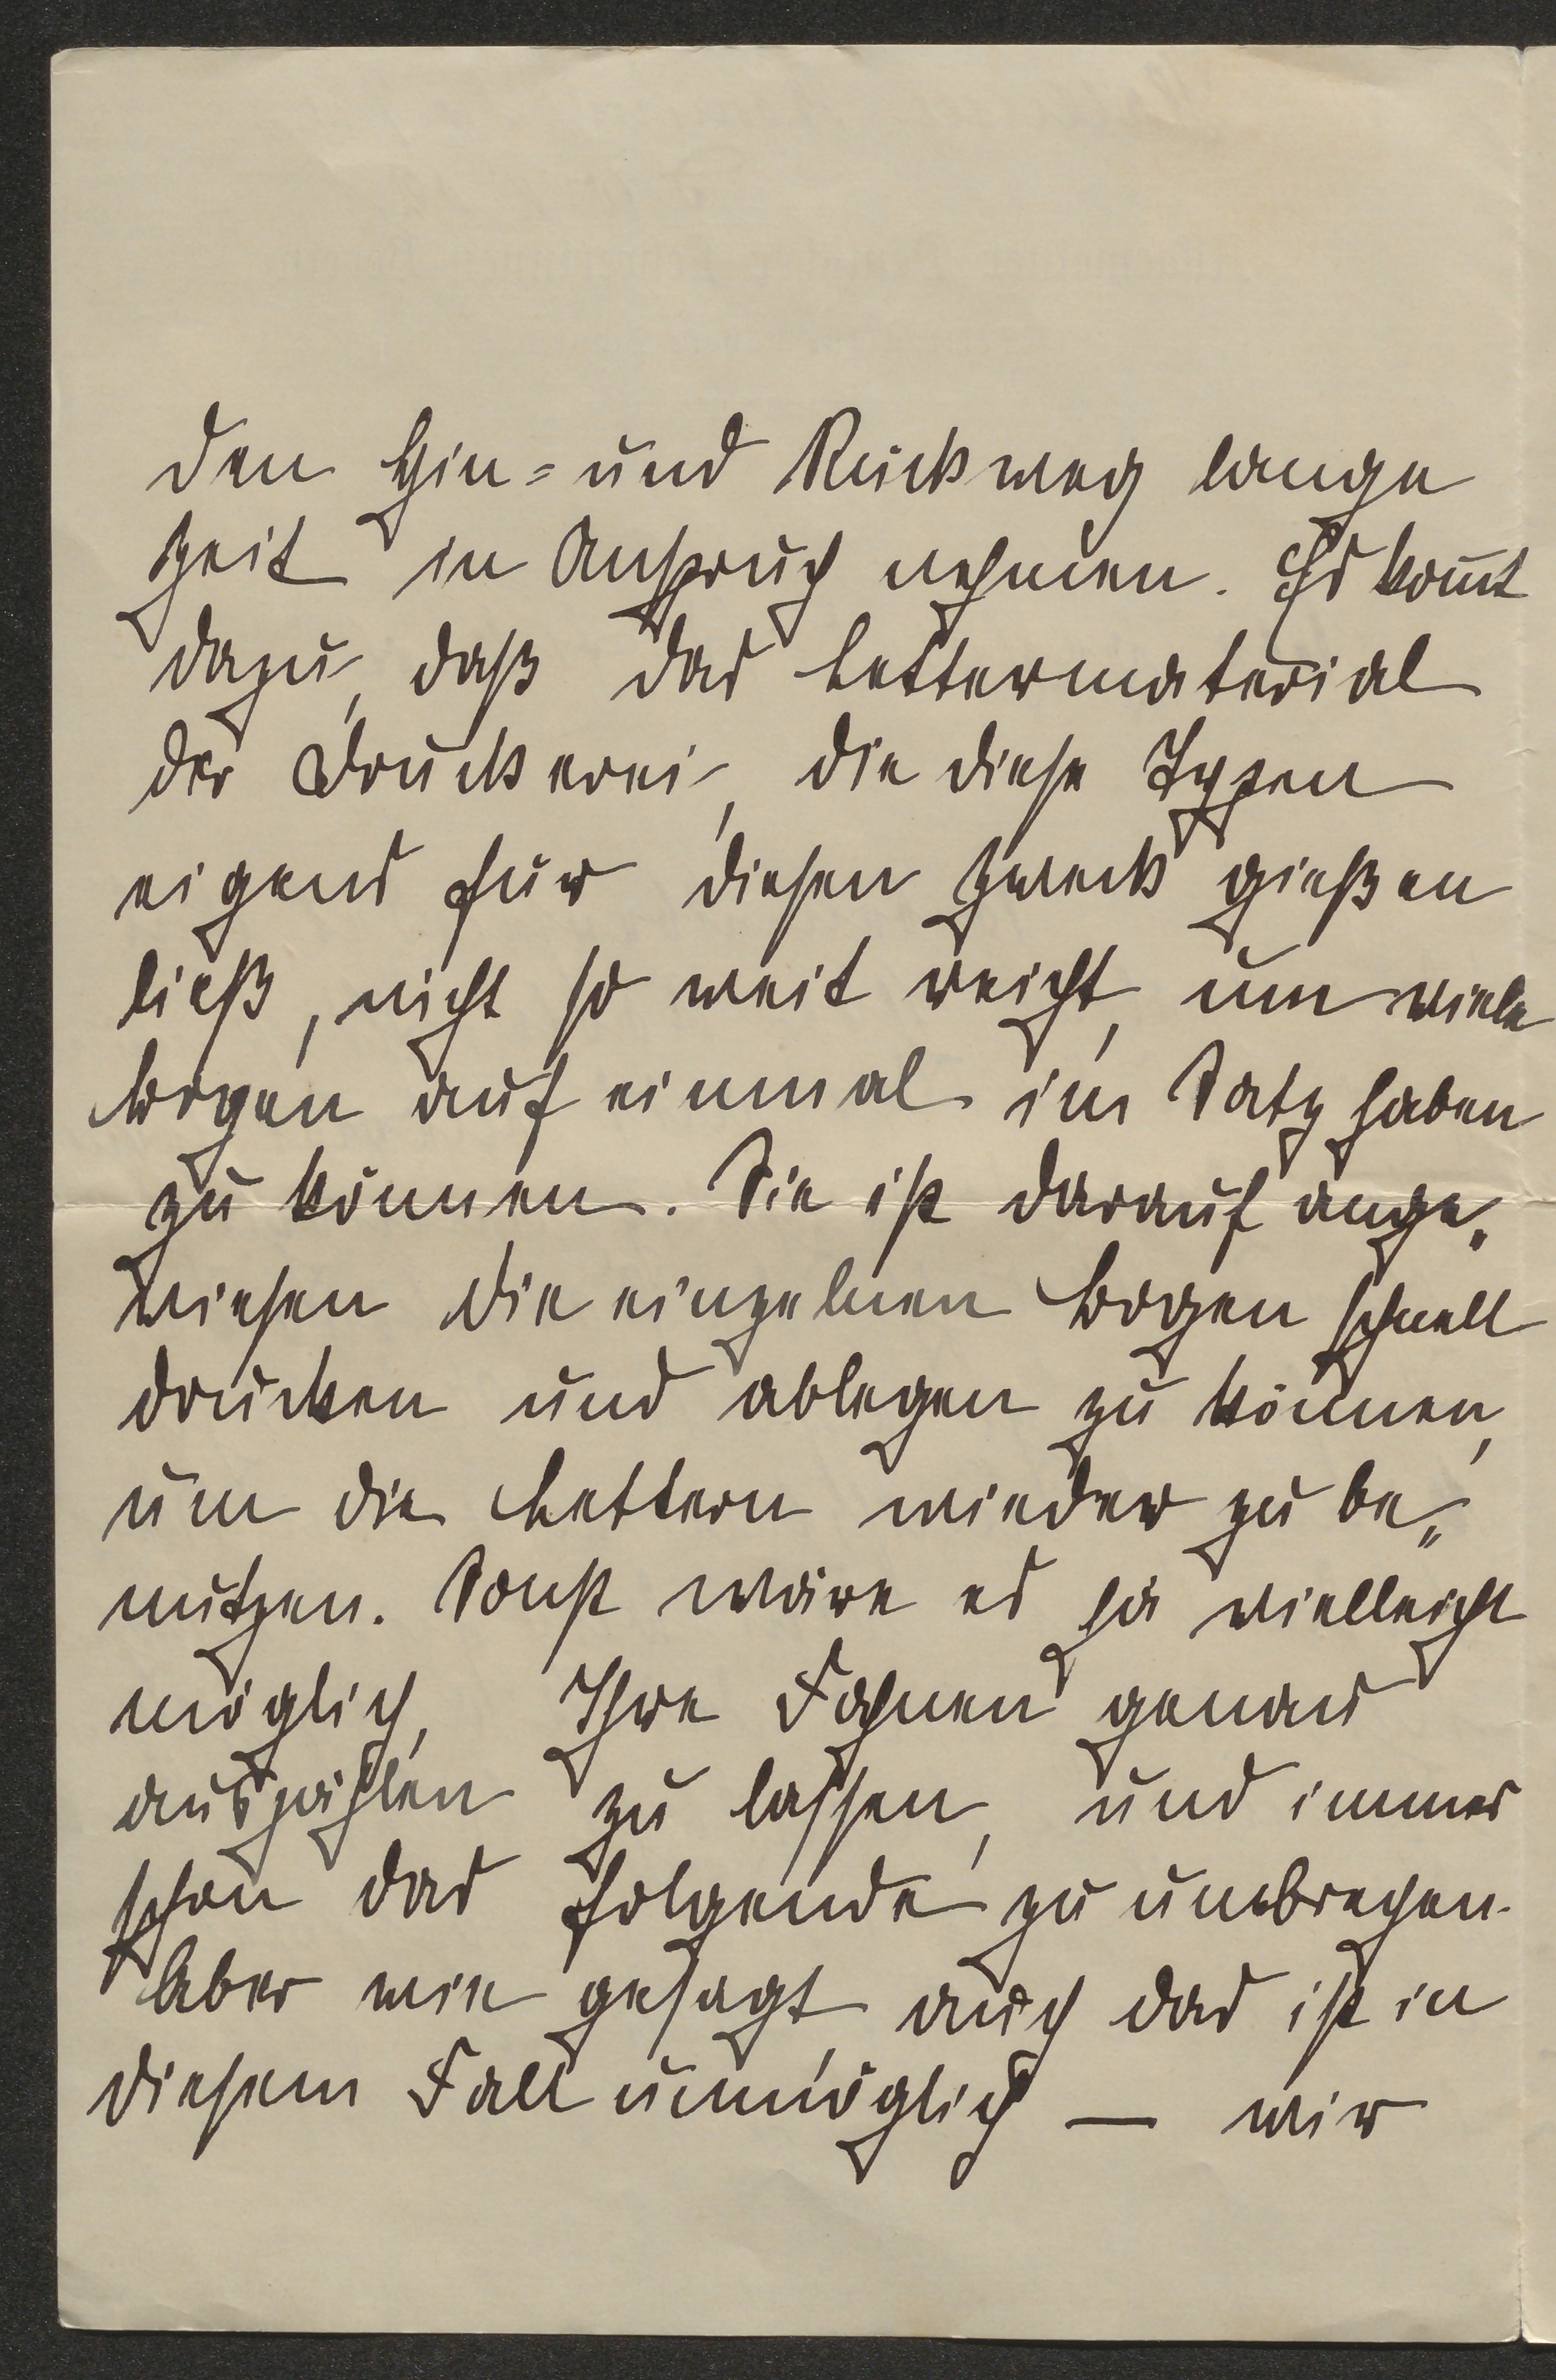 den Hin- und Rückweg lange
Zeit in Anspruch nehmen. Es kom̄t
dazu, daß das Lettermaterial
der Druckerei, die diese Typen
eigens für diesen Zweck gießen
ließ, nicht so weit reicht, um viele
Bogen auf einmal im Satz haben
zu können. Sie ist darauf ange„
wiesen die einzelnen Bogen schnell
drucken und ablegen zu können,
um die Lettern wieder zu be„
nutzen. Sonst wäre es ja vielleicht
möglich, Ihre Fahnen genau
auszählen zu lassen, und immer
schon das folgende zu umbrechen.
Aber wie gesagt, auch das ist in
diesem Fall unmöglich — wir